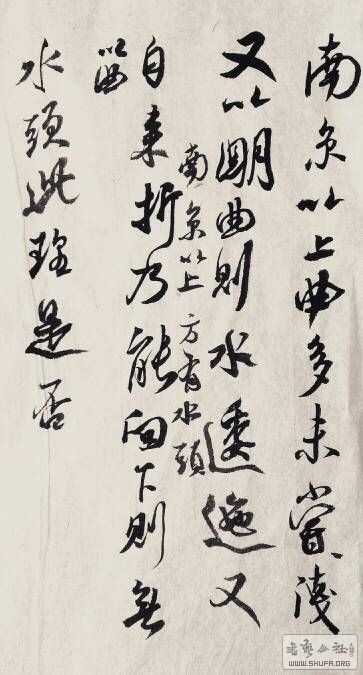 南京以上曲多未嘗淺
又以朙曲則水逶迤又
南京以上方有水頭
自来折乃能向下則無
以曲
水頭此理是否
書藝公社
WWW.SHUFA.ORG